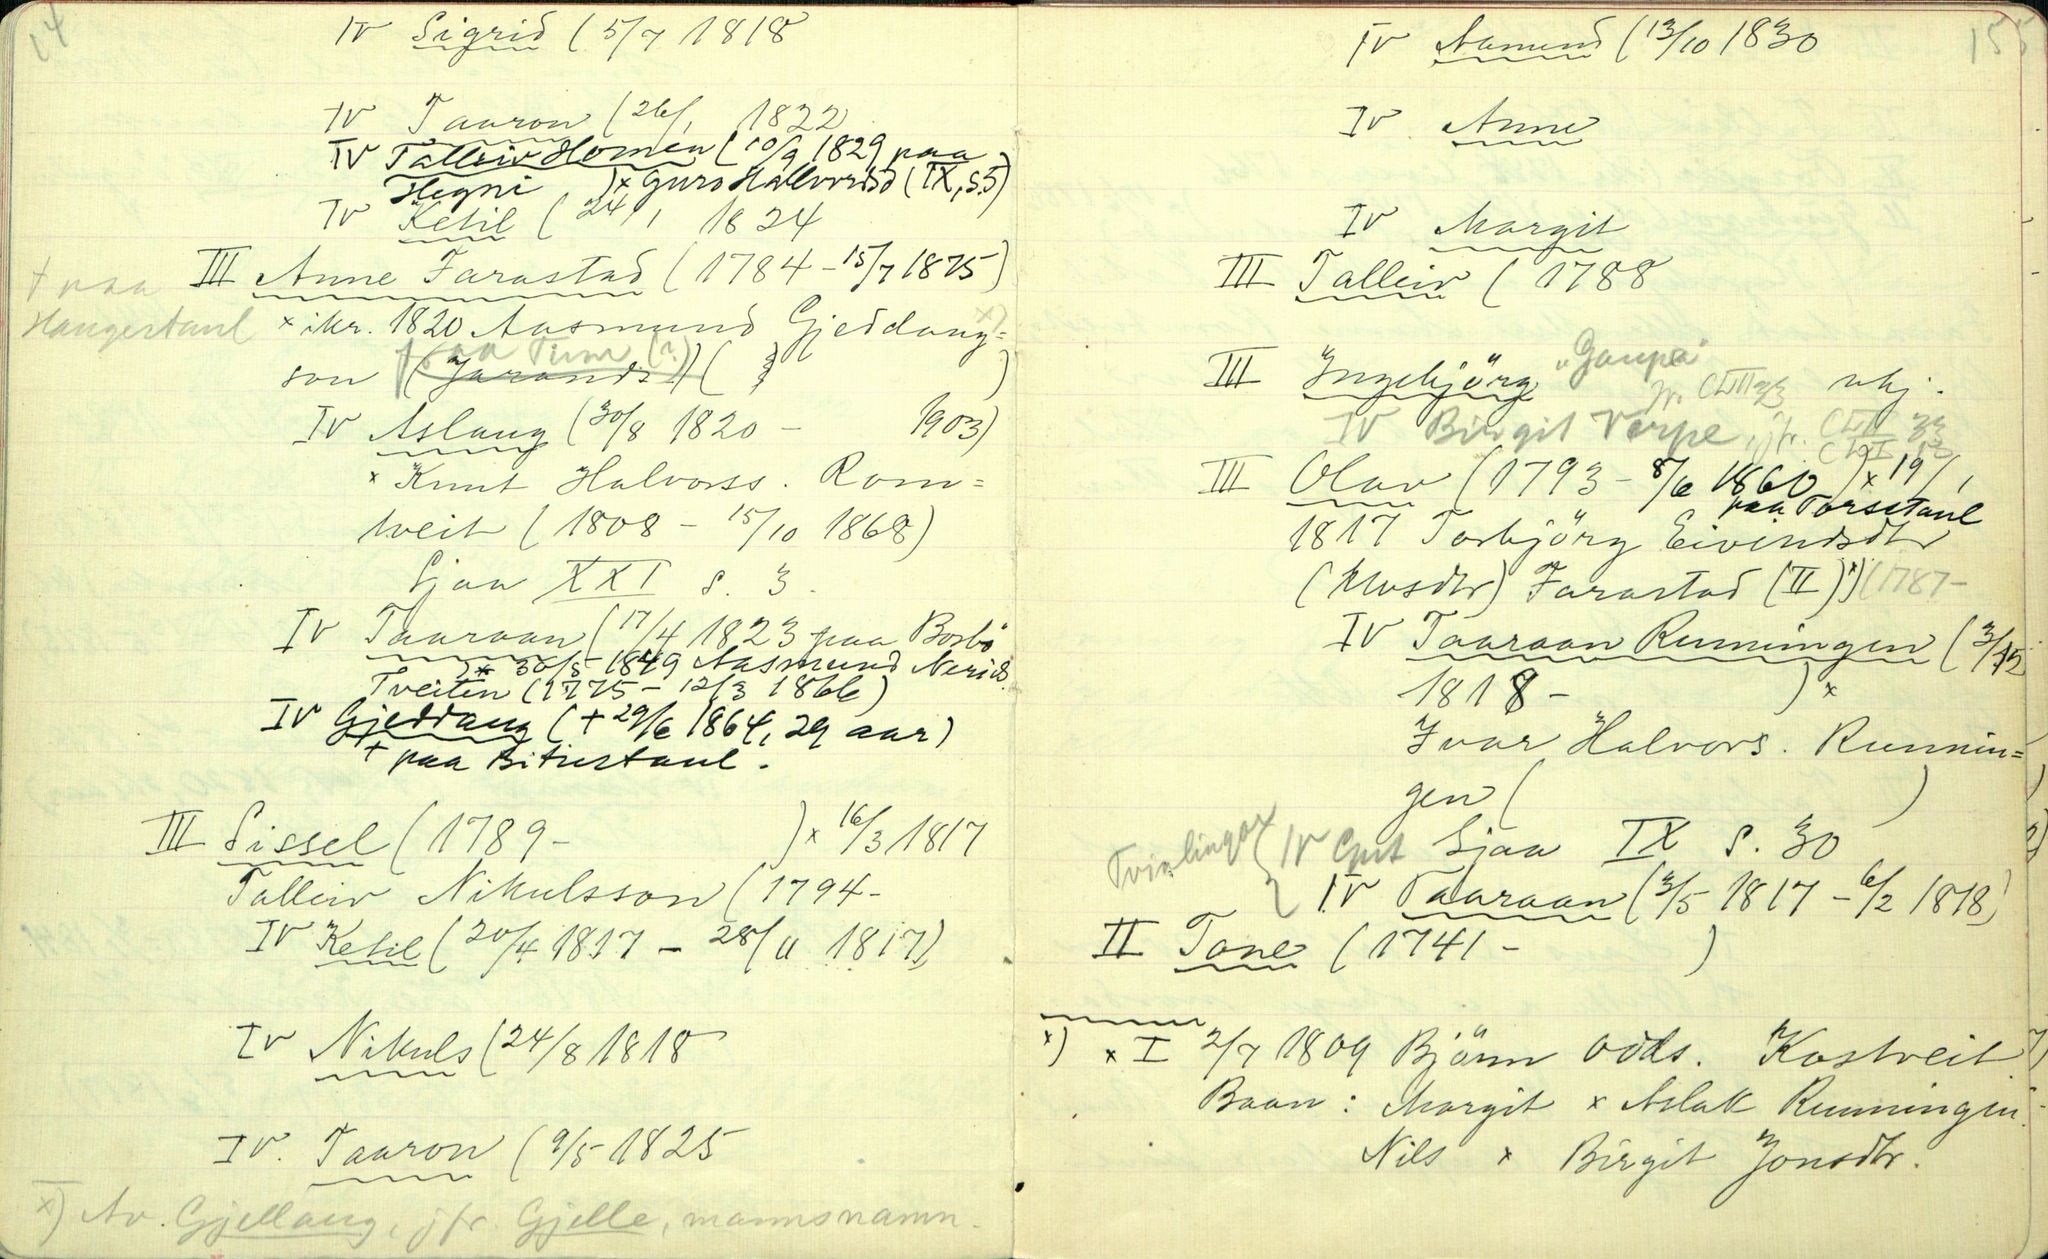 IV Sigrid (5/7 1818
IV Taaron (26/1 1822
IV Talleiv Homen (10/9 1829 paa
Hegni )x Guro Hallvordsd (IX, s.5)
IV Ketil (24/1 1824
III Anne Farastad (1784 - 15/7 1875)
+ paa
Haugestaul
x ikr. 1820 Aasmund Gjeddaug= x)
paa Tinn (?)
son (Jaronds) ( )
IV Aslaug (30/8 1820 - 1903)
x Knut Halvorss. Rom=
tveit (1808 - 15/10 1868)
Sjaa XXI s. 3.
IV Taaraan (17/4 1823 paa Bosbö
)x 30/5 1849 Aasmund Nerids.
Tveiten (1775 - 12/3 1866)
IV Gjeddaug (+ 29/6 1864, 29 aar)
+ paa Bitustaul.
III Sissel (1789 - )x 16/3 1817
Talleiv Nikulsson (1794 -
IV Ketil (20/4 1817 - 28/11 1817)
IV Nikuls (24/8 1818
IV. Taaron (9/5 1825
x) Av. Gjellaug, jfr. Gjelle, mannsnamn.
155
IV Aamund (13/10 1830
IV Anne
IV Margit
III Talleiv (1788
III Ingebjörg "Gaupa" ukj.
IV Birgit Verpe, jfr.
III Olav (1793 - 8/6 1860 )x 19/1
paa Torsstaul
1817 Torbjörg Eivindsdtr
(Olvsdtr) Farastad (II) x) (1787 -
IV Taaraan Runningen (3/12
1818 - ) x
Ivar Halvors. Runnin=
gen ( )
Sjaa IX s. 30
Tvinlingar { IV Gut
IV Taaraan (3/5 1817 - 6/2 1818)
II Tone (1741 - )
x) x I 2/7 1809 Björn Odds. Kostveit
Baan: Margit x Aslak Runningen.
Nils x Birgit Jonsdtr.